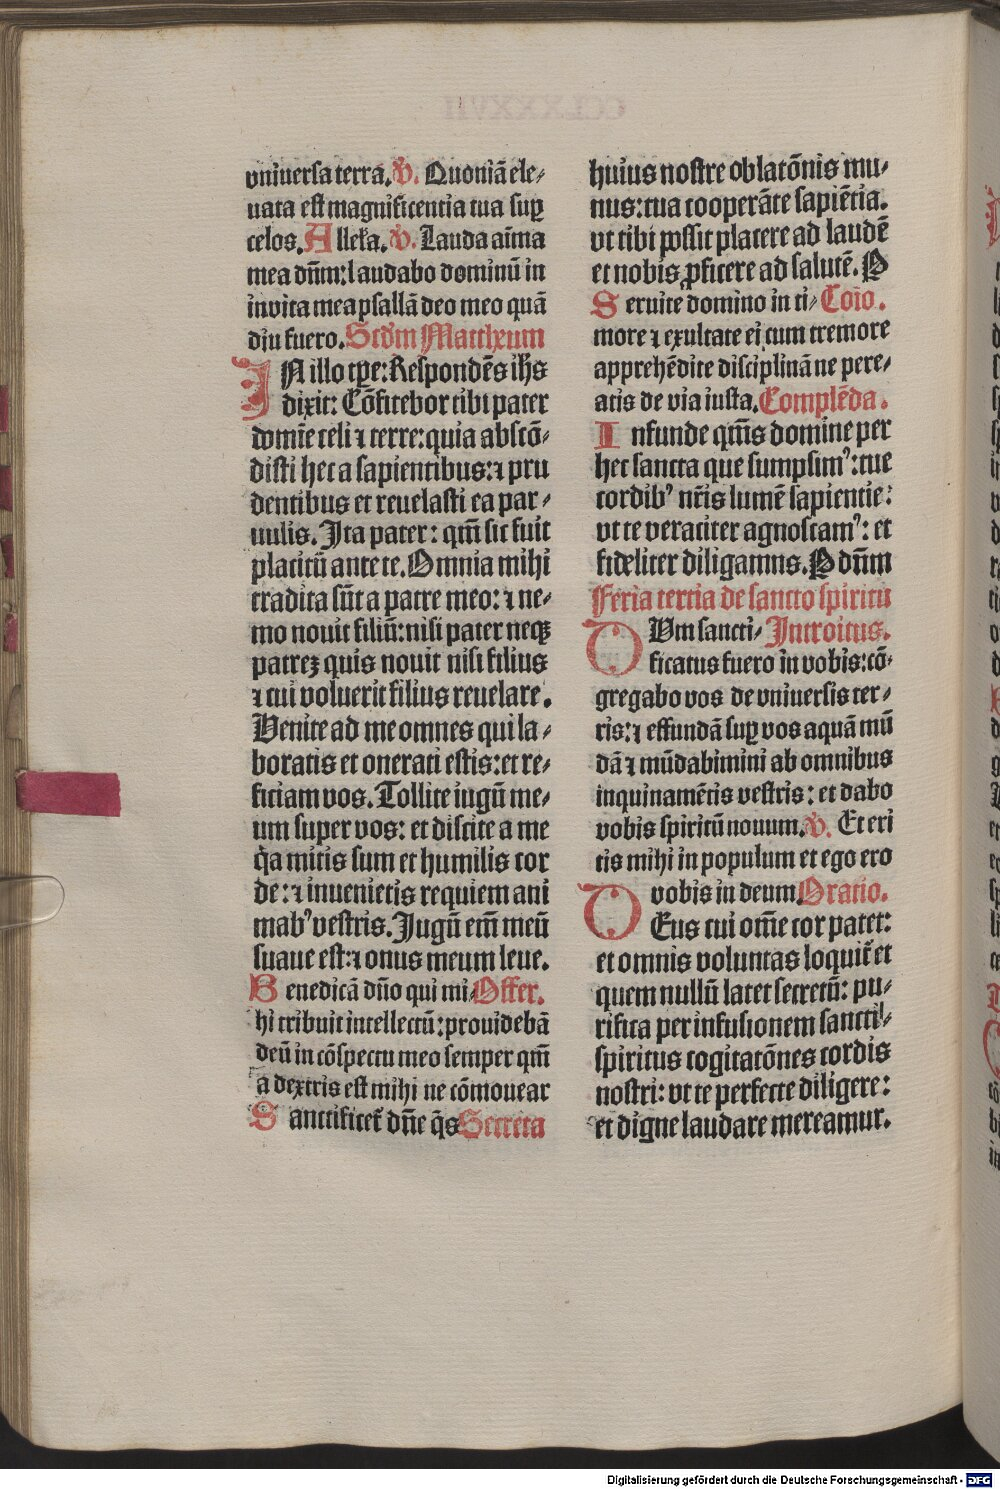 vniuersa terra. V. Quoniā ele⸗
uata est magnificentia tua suꝑ
celos. Alleła. V. Lauda aīma
mea dn̄m: laudabo dominū in
in vita mea psallā deo meo quā
diu fuero. Scd̓m Mattheum
IN illo tꝑe: Respondēs ihs
dixit: Cōfitebor tibi pater
domīe celi ⁊ terre: quia abscō⸗
disti hec a sapientibus: ⁊ pru
dentibus et reuelasti ea par⸗
uulis. Ita pater: qm̄ sic fuit
placitū ante te. Omnia mihi
tradita sūt a patre meo: ⁊ ne⸗
mo nouit filiū: nisi pater neqꝫ
patreꝫ quis nouit nisi filius
⁊ cui voluerit filius reuelare.
Venite ad me omnes qui la⸗
boratis et onerati estis: et re⸗
ficiam vos. Tollite iugū me⸗
um super vos: et discite a me
q̄a mitis sum et humilis cor
de: ⁊ inuenietis requiem ani
mabꝰ vestris. Jugū em̄ meū
suaue est: ⁊ onus meum leue.
Benedicā dn̄o qui mi⸗ Offer.
hi tribuit intellectū: prouidebā
deū in cōspectu meo semper qm̄
a dextris est mihi ne cōmouear
Sanctificet᷑ dn̄e q̄s Secreta
huius nostre oblatōnis mu⸗
nus: tua cooperāte sapiētia.
vt tibi possit placere ad laudē
et nobis ꝓficere ad salutē. P
Seruite domino in ti⸗ Coīo.
more ⁊ exultate ei cum tremore
apprehēdite disciplinā ne pere⸗
atis de via iusta. Complēda.
Infunde qm̄s domine per
hec sancta que sumpsimꝰ: tue
cordibꝰ nr̄is lumē sapientie:
vt te veraciter agnoscamꝰ: et
fideliter diligamus. P dn̄m
Feria tercia de sancto spiritu
DVm sancti⸗ Introitus.
ficatus fuero in vobis: cō⸗
gregabo vos de vniuersis ter⸗
ris: ⁊ effundā suꝑ vos aquā mū
dā ⁊ mūdabimini ab omnibus
inquinamētis vestris: et dabo
vobis spiritū nouum. V. Et eri
tis mihi in populum et ego ero
vobis in deum Oratio.
DEus cui om̄e cor patet:
et omnis voluntas loquit᷑ et
quem nullū latet secretū: pu⸗
rifica per infusionem sancti⸗
spiritus cogitatōnes cordis
nostri: vt te perfecte diligere:
et digne laudare mereamur.
Digitalisierung gefördert durch die Deutsche Forschungsgemeinschaft - DFG